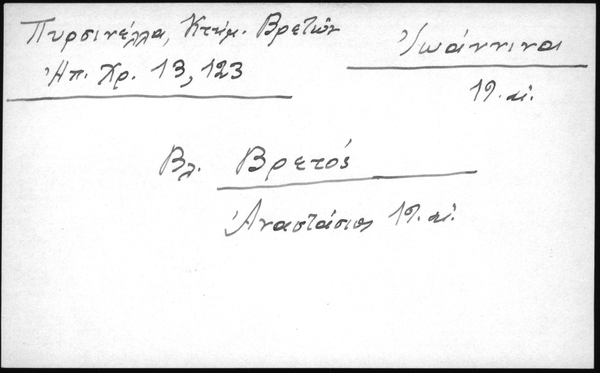 Πυρσινέλλα, Κτήμ. Βρετῶν
Ἠπ. Χρ. 13, 123
Ἰωάννινα
19. αἰ.
Βλ. Βρετός
Ἀναστάσιος 19. αἰ.